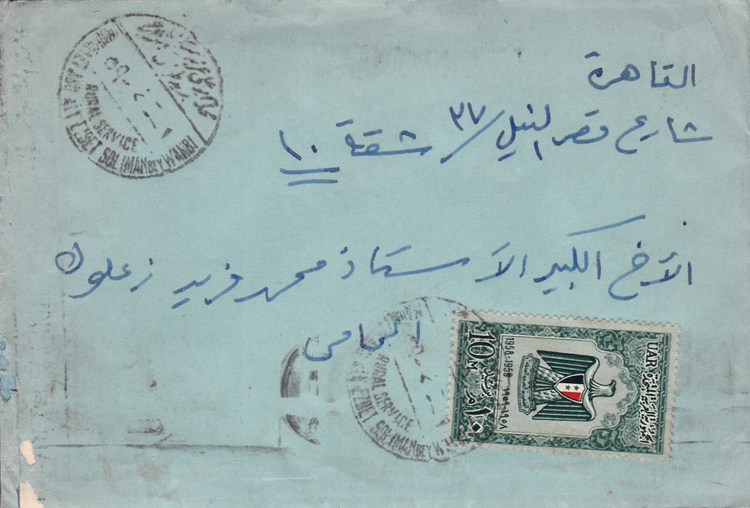 القاهرة
شارع قصر النيل ٣٧ / شقة ١٠
الأخ الكبير الأستاذ محمد فريد زعلوك
المحامى
RURAL SERVICE
EZBET SOLIMAN BEY WAHBI
RURAL SERVICE
EZBET SOLIMAN BEY W
UAR
1958-1959
10 M
١٠